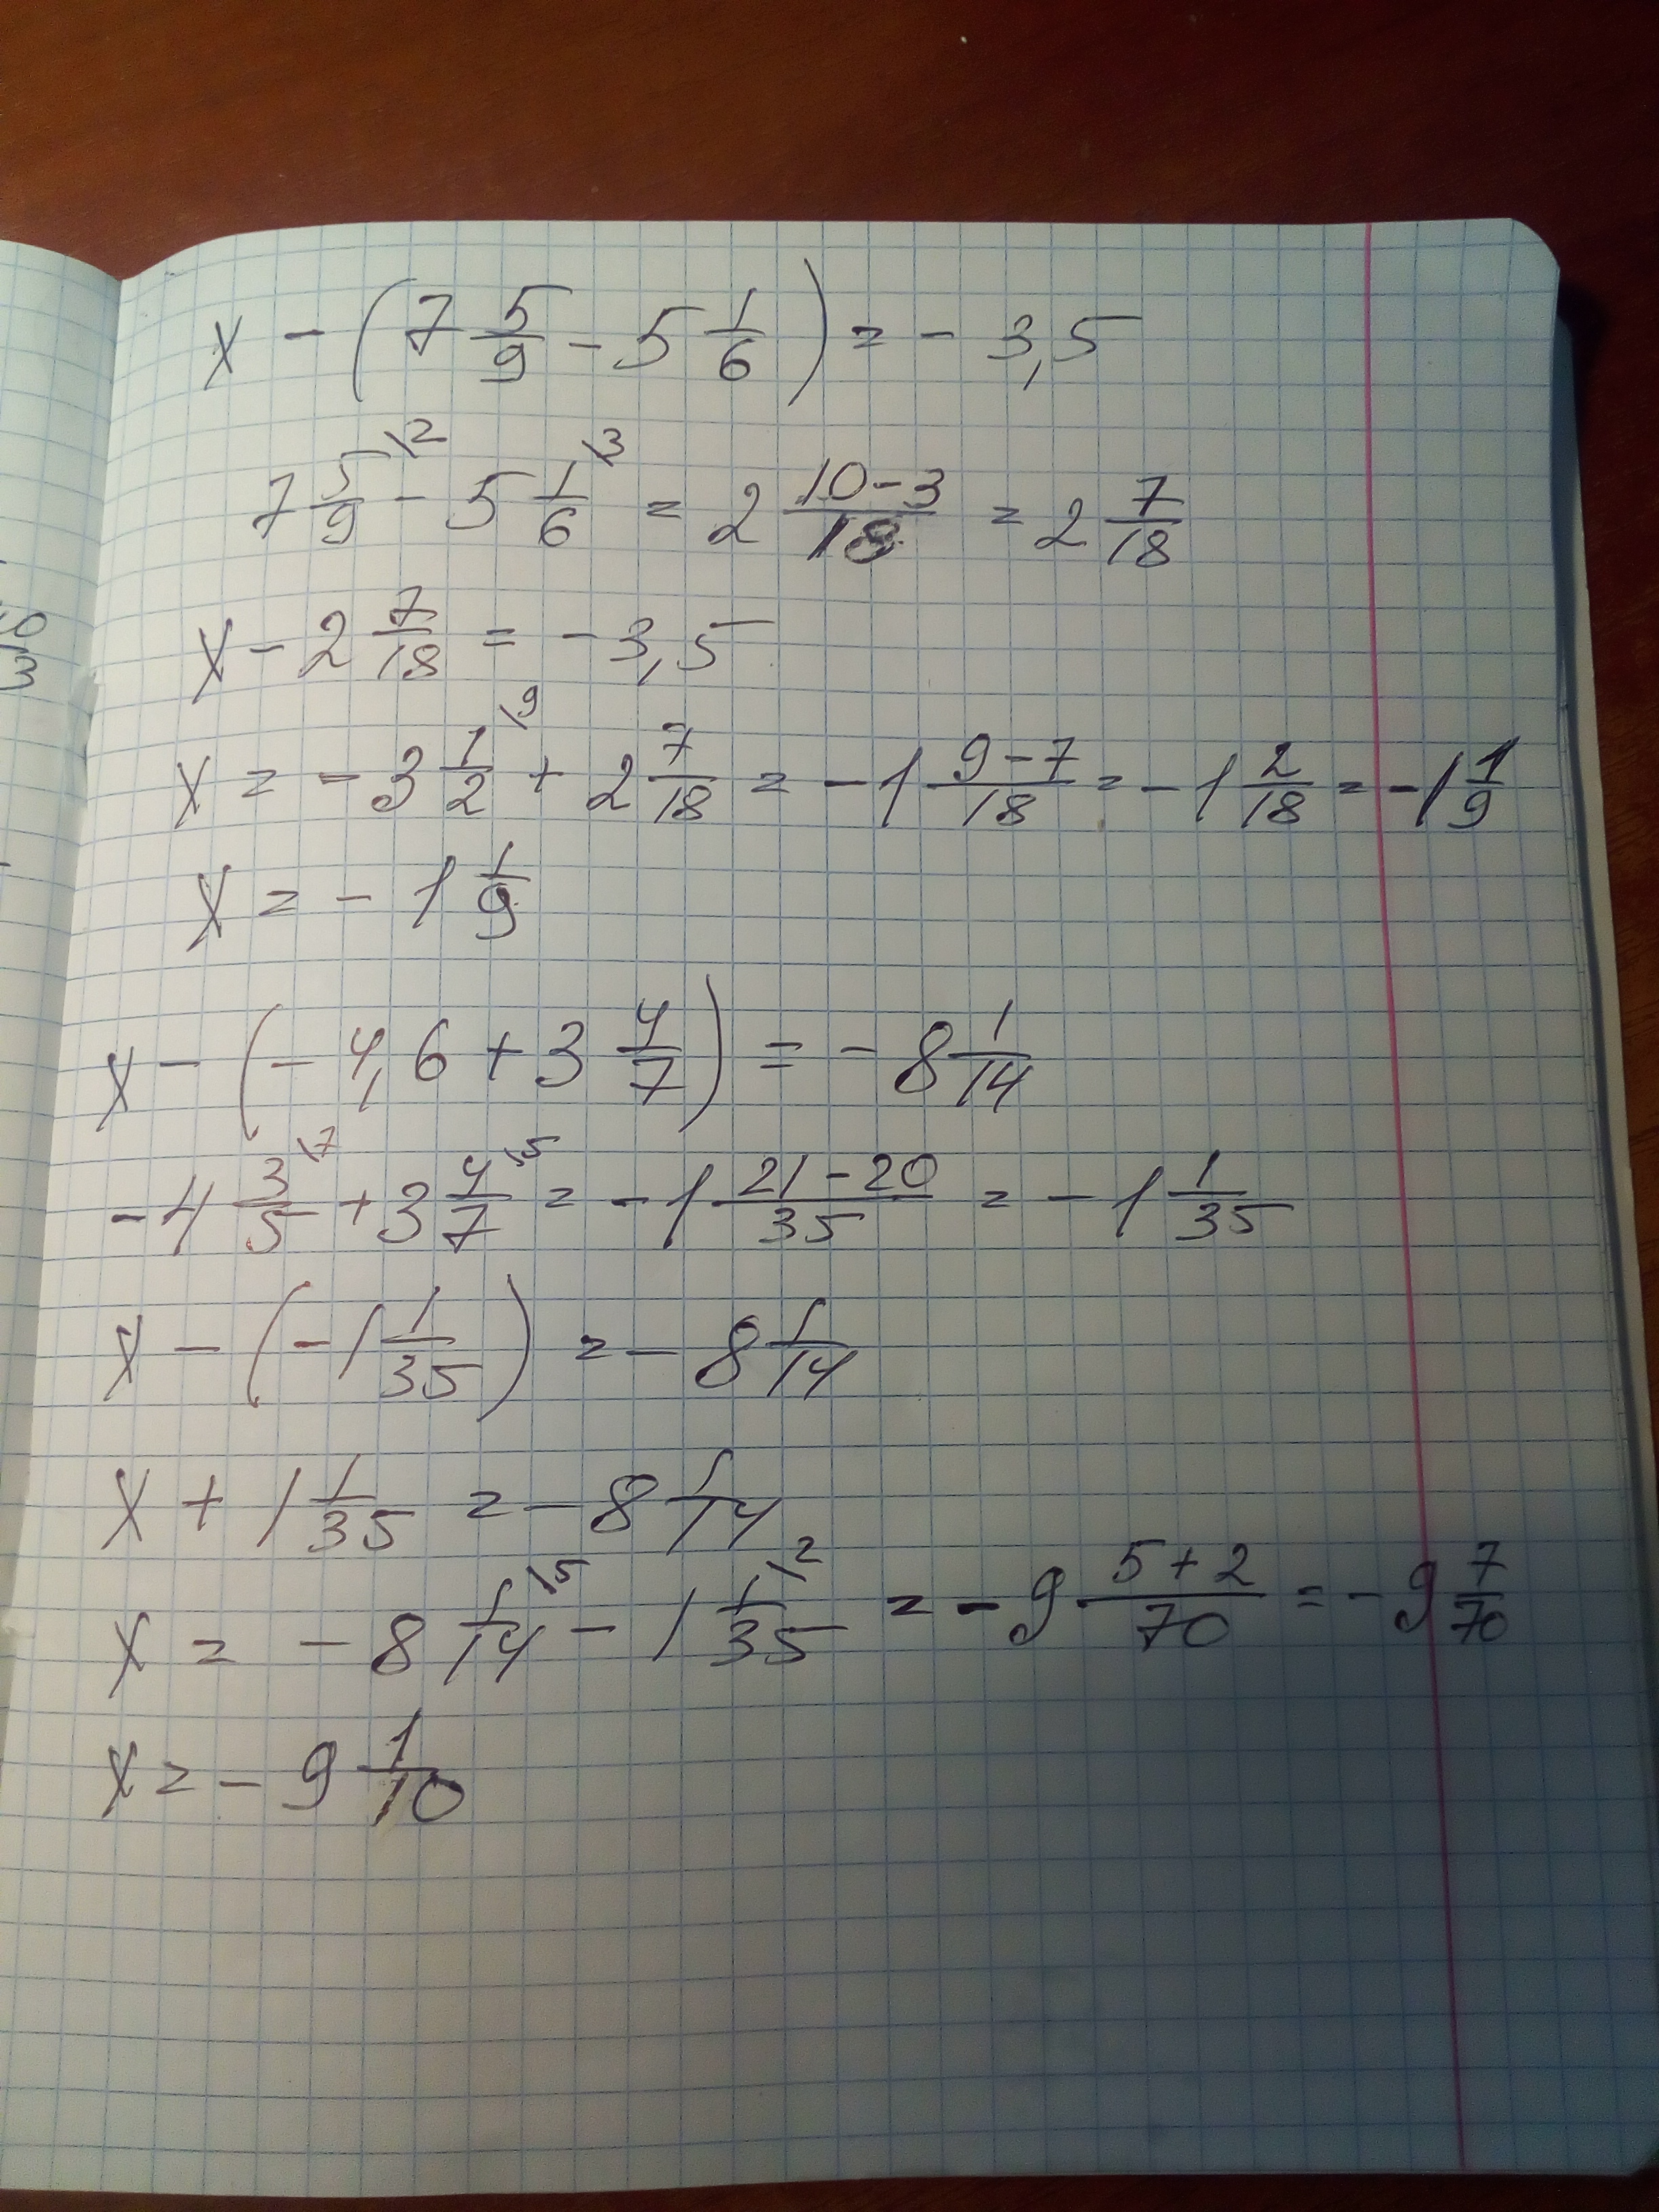 x - (7 5/9 - 5 1/6) = - 3,5
7 5/9 \2 - 5 1/6 \3 = 2 10-3/18 = 2 7/18
x - 2 7/18 = - 3,5
x = - 3 1/2 \9 + 2 7/18 = - 1 9-7/18 = - 1 2/18 = - 1 1/9
x = - 1 1/9
x - (- 4,6 + 3 4/7) = - 8 1/14
- 4 3/5 \7 + 3 4/7 \5 = - 1 21-20/35 = - 1 1/35
x - (- 1 1/35) = - 8 1/14
x + 1 1/35 = - 8 1/14
x = - 8 1/14 \5 - 1 1/35 \2 = - 9 5+2/70 = - 9 7/70
x = - 9 1/10